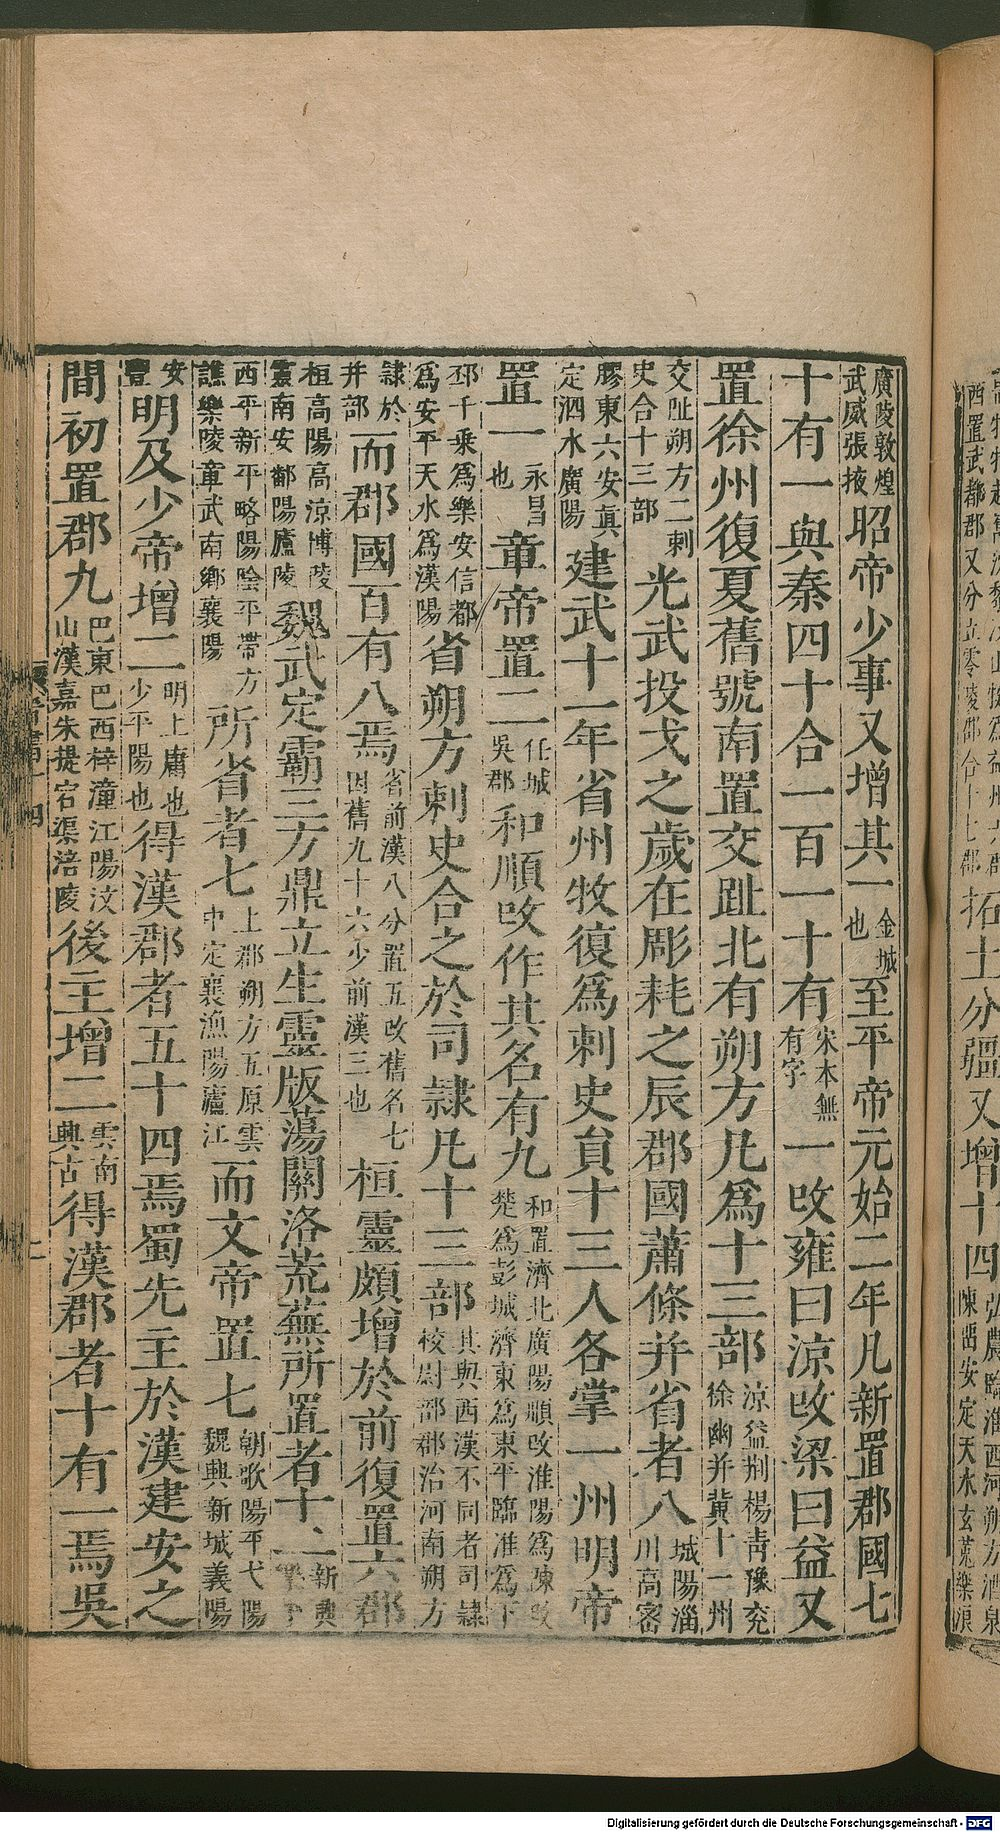 西置武都郡又分立零陵郡合十七郡拓土分疆又增十四弘農臨淮西河朔方酒泉陳留安定天水玄菟樂浪
廣陵敦煌武威張掖昭帝少事又增其一金城也至平帝元始二年凡新置郡國七
十有一與秦四十合一百一十有宋本無有字一攺雍曰涼攺梁曰益又
置徐州復夏舊號南置交趾北有朔方凡爲十三部涼益荆楊青豫兖徐幽并冀十一州
交趾朔方二刺史合十三部光武投戈之歲在彫耗之辰郡國蕭條并省者八城陽淄川高密
膠東六安真定泗水廣陽建武十一年省州牧復爲刺史員十三人各掌一州明帝
置一永昌也章帝置二任城吳郡和順攺作其名有九和置濟北廣陽順攺淮陽爲陳攺楚爲彭城濟東爲東平臨淮爲下
邳千乘爲樂安信都爲安平天水爲漢陽省朔方刺史合之於司隸凡十三部其與西漢不同者司隸校尉部郡治河南朔方
隸於并部而郡國百有八焉省前漢八分置五攺舊名七因舊九十六少前漢三也桓靈頗增於前復置六郡
桓高陽高涼博陵靈南安鄱陽廬陵魏武定霸三方鼎立生靈版蕩關洛荒蕪所置者十二新興樂平
西平新平略陽陰平帶方譙樂陵章武南鄉襄陽所省者七上郡朔方五原雲中定襄漁陽廬江而文帝置七朝歌陽平弋陽魏興新城義陽
安豐明及少帝增二明上庸也少平陽也得漢郡者五十四焉蜀先主於漢建安之
間初置郡九巴東巴西梓潼江陽汶山漢嘉朱提宕渠涪陵後主增二雲南興古得漢郡者十有一焉吳
Digitalisierung gefördert durch die Deutsche Forschungsgemeinschaft - DFG